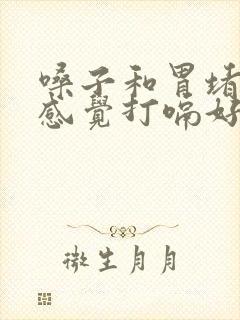 嗓子和胃堵
感覺打嗝好
微生月月